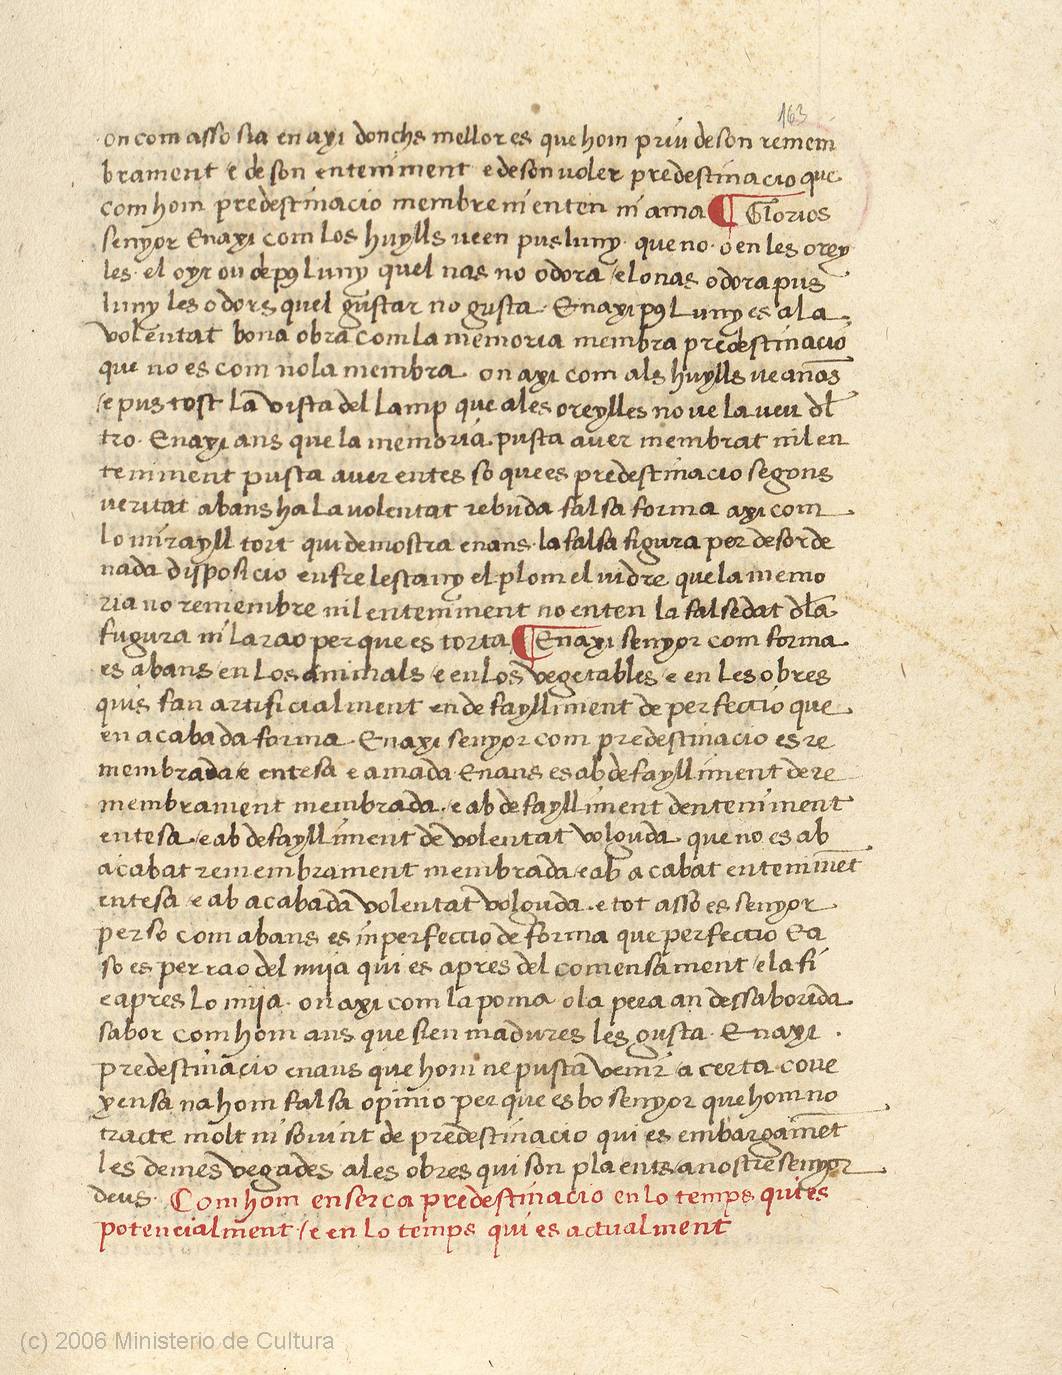 163
on com asso sia en axi donchs mellor es que hom priu de son remem
brament e de son enteniment e de son voler predestinacio que
com hom predestinacio membre ni enten ni ama ¶ Glorios
senyor Enaxi com los huylls veen pus luny que no o en les orey
les el oyr ou de pꝯ luny quel nas no odora / el o nas odora pus
luny les odors quel gustar no gusta Enaxi pꝯ luny es a la
volentat bona obra com la memoria membra predestinacio
que no es com no la membra on axi com als huylls ve anãs
/ e pus tost lã vista del lamp que a les oreylles no ve la veu dl̃
tro Enaxi ans que la memoria pusta aver membrat ni l en
teniment pusta aver entes so que es predestinacio segons
veritat abans ha la volentat rebuda falsa forma axi com
lo mirayll tort qui demostra enans la falsa figura per desorde
nada disposicio enfre lestany el plom el vidre que la memo
ria no remembre nil enteniment no enten la falsedat dl̃a
fugura ni la rao per que es torta ¶ Enaxi senyor com forma
es abans en los animals / e en los vegetables e en les obres
quis fan artificialment en defaylliment de perfectio que
en acabada forma Enaxi senyor com predestinacio es re
membrada / e entesa e amada Enans es ab defaylliment de re
membrament membrada e ab defaylliment denteniment
entesa / e ab defaylliment de volentat volguda que no es ab
acabat remembrament membrada / e ab acabat entenimẽt
entesa e ab acabada volentat volguda e tot asso es senyor
per so com abans es inperfectio de forma que perfectio Ea
so es per rao del mija qui es apres del comensament / e la fi
e apres lo mija on axi com la poma o la pera an dessaborida
sabor com hom ans que sien madures les gusta Enaxi
predestinacio enans que hom ne pusta venir a certa cone
xensa na hom falsa opinio per que es bo senyor que hom no
tracte molt ni sovint de predestinacio qui es embargamẽt
les demes vegades a les obres qui son plaents a nostre senyor
deus Com hom enserca predestinacio en lo temps qui es
potencialment / e en lo temps qui es actualment
(c) 2006 Ministerio de Cultura